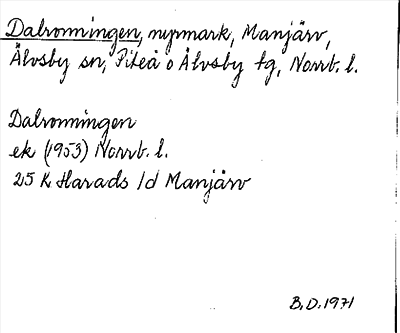 Dalronningen, myrmark, Manjärv,
Älvsby sn, Piteå o Älvsby tg, Norrb. l.
Dalronningen
ek (1953) Norrb. l.
25 K Harads 1d Manjärv
B.D. 1971